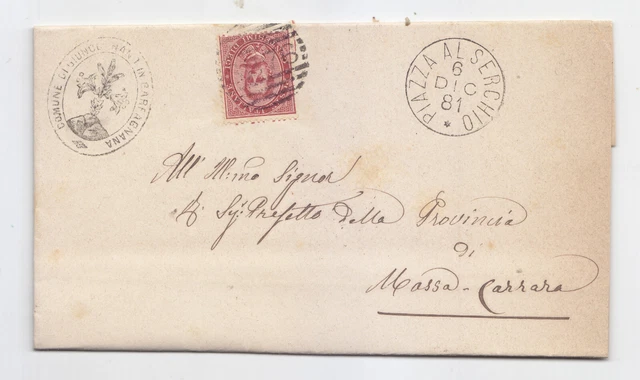 COMUNE DI GIUNCUGNANO IN GARFAGNANA
PIAZZA AL SERCHIO
6
DIC
81
All' Ill:mo Signor
Sig: Prefetto della Provincia
di
Massa-Carrara